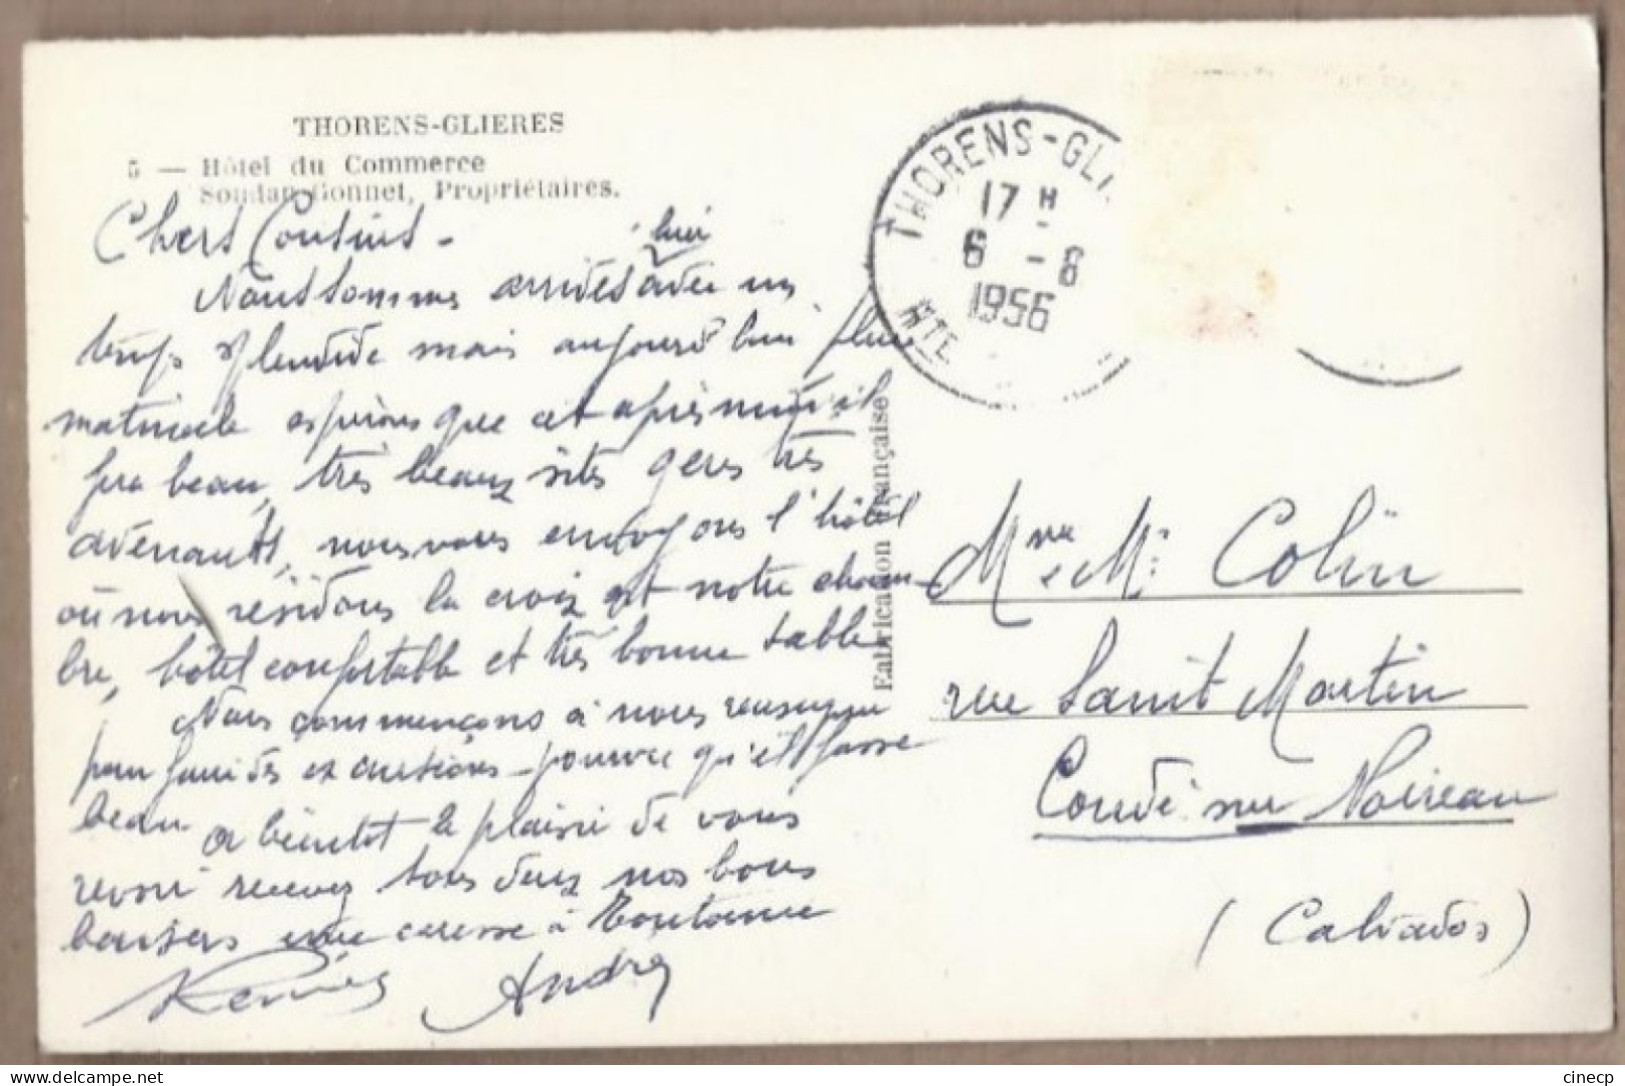 THORENS-GLIERES
5 — Hôtel du Commerce
Soudan-Gonnet, Propriétaires.
Chers Cousins -
hier
Nous sommes arrivés avec un
temps splendide mais aujourd'hui pluie
matinale espérons que cet après midi il
fera beau, très beaux sites gens très
avenants, nous vous envoyons l'hôtel
où nous résidons la croix est notre cham-
bre, hôtel confortable et très bonne table
Nous commençons à nous
pour excursions pourvu qu'il fasse
beau
a bientôt le plaisir de vous
revoir recevez tous deux nos bons
baisers une caresse à
André
Fabrication Française
THORENS-GLI
17 H
6 - 6
1956
HTE
Mme & Mr Colin
rue Saint Martin
Condé sur Noireau
(Calvados)
cinecp